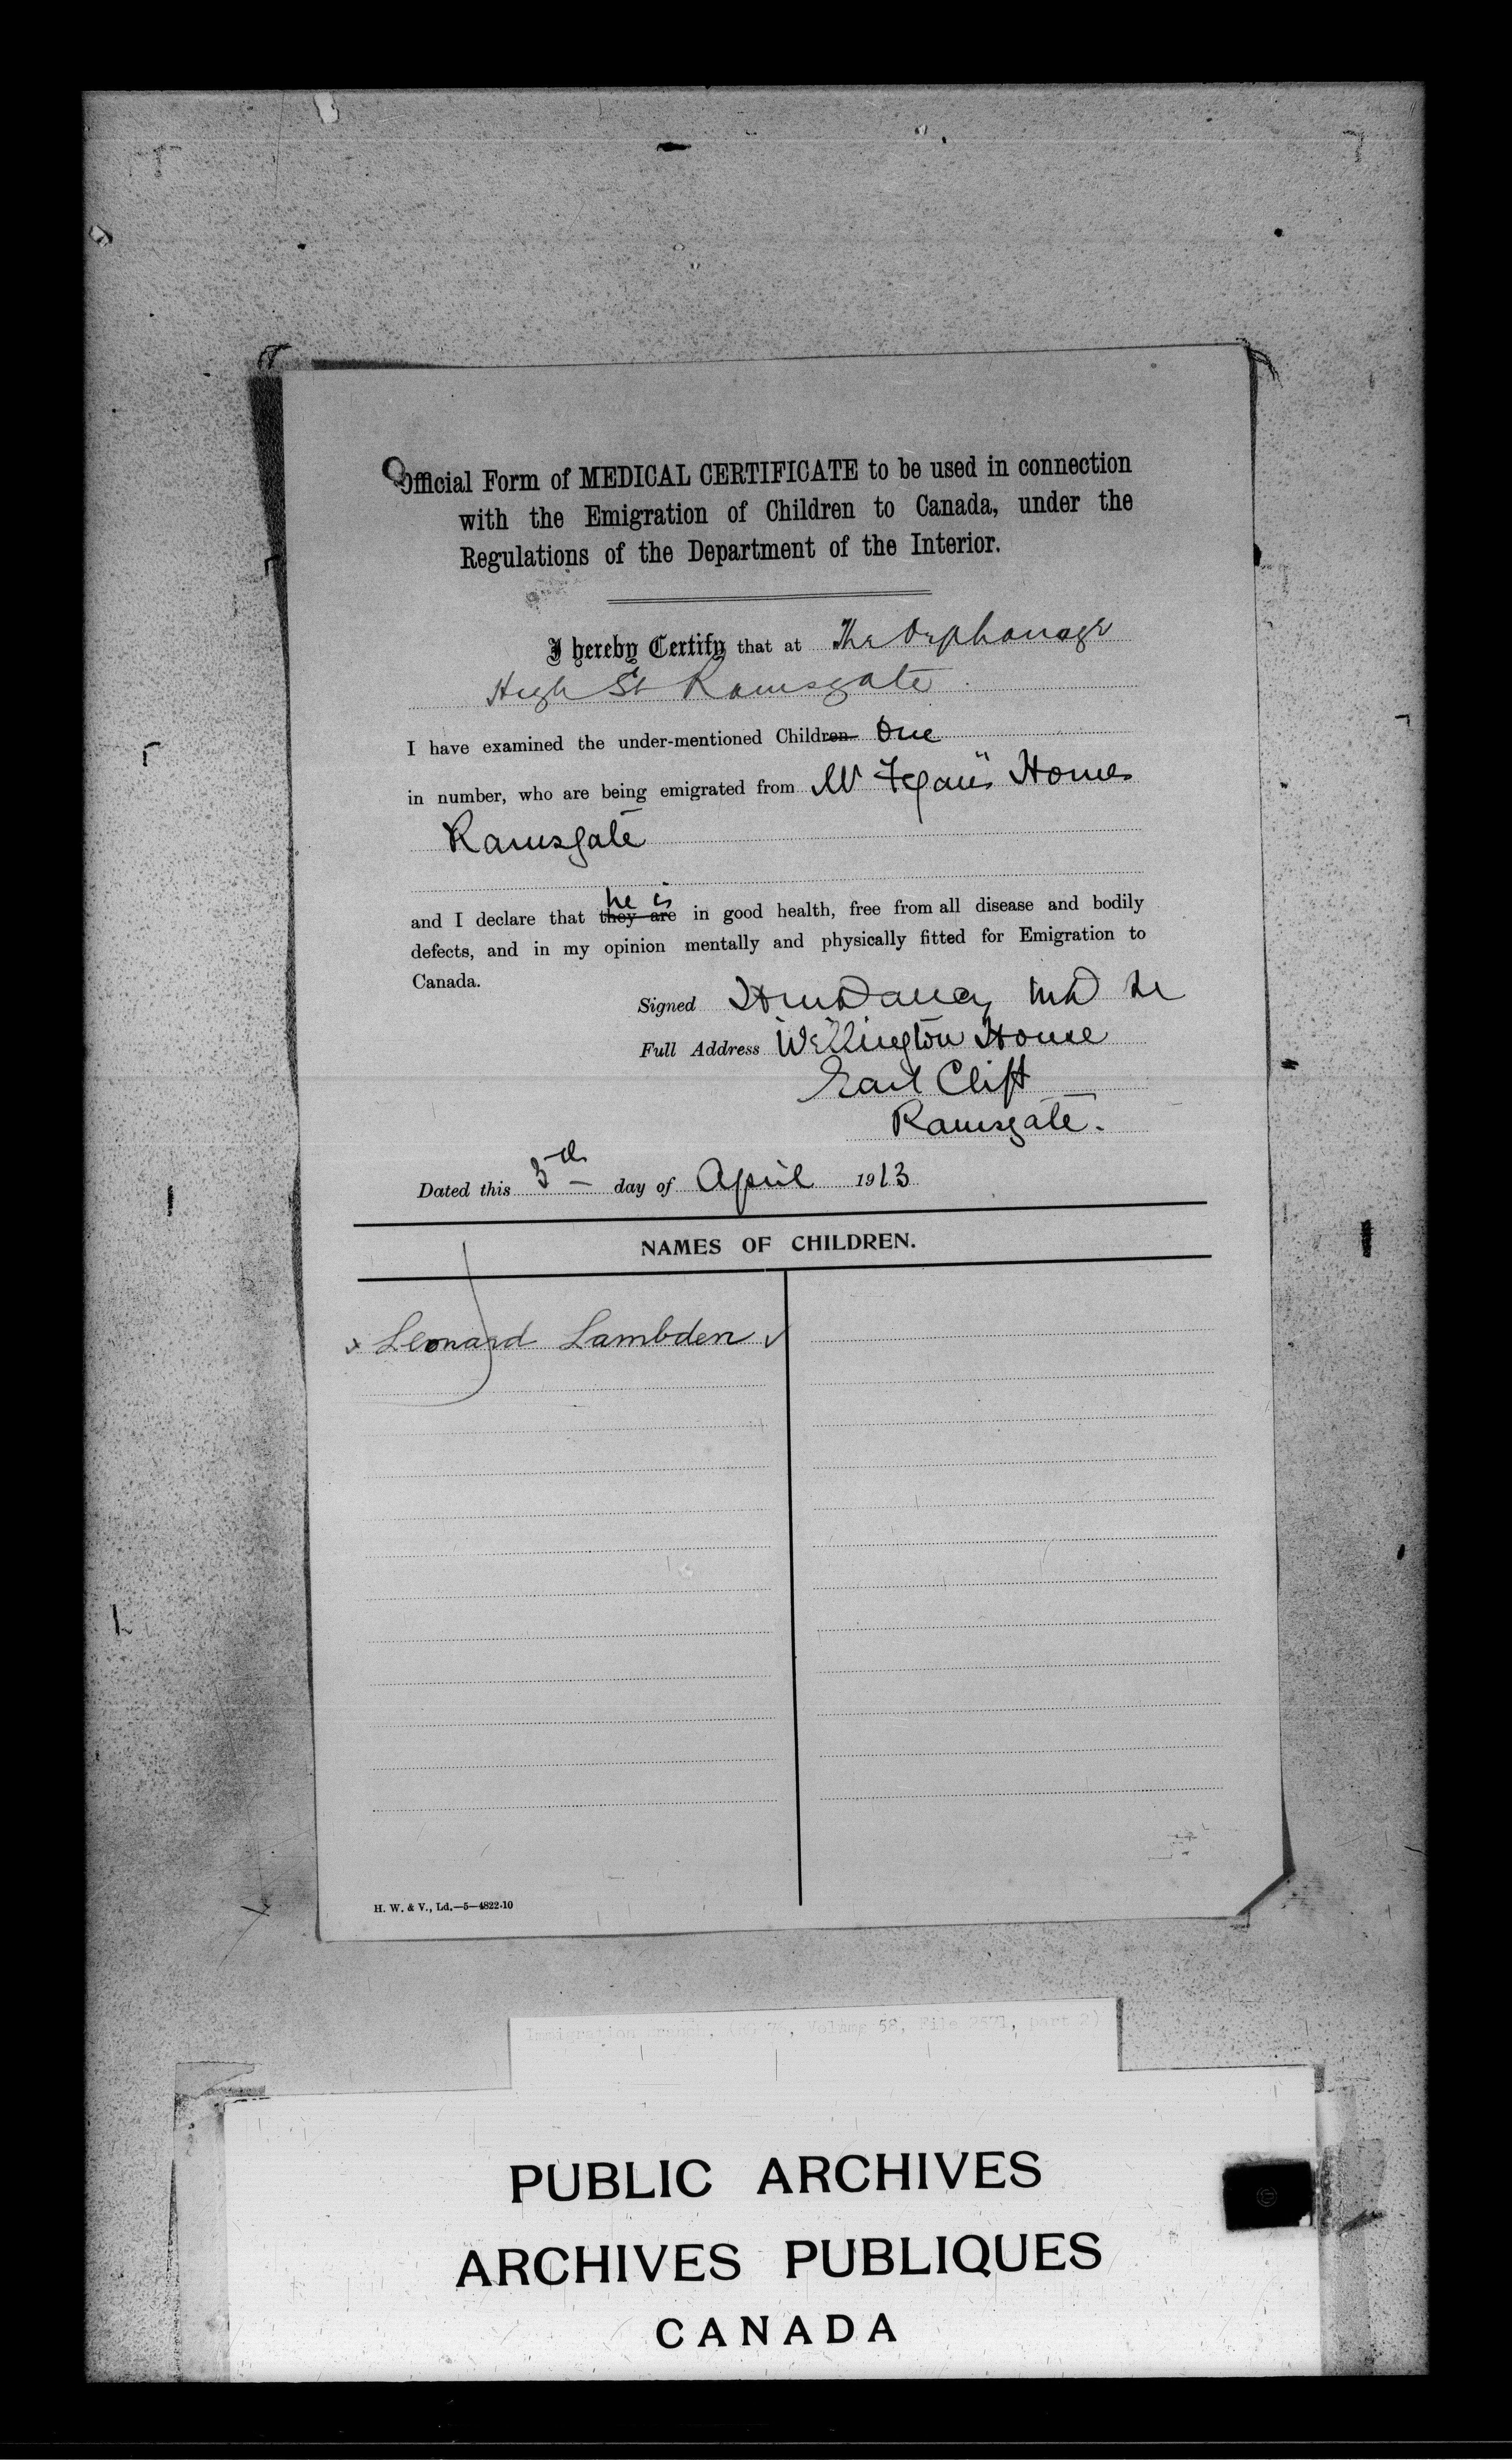 Official Form of MEDICAL CERTIFICATE to be used in connection
with the Emigration of Children to Canada, under the
Regulations of the Department of the Interior.
I hereby Certify that at The Orphanage
High St Ramsgate
I have examined the under-mentioned Children One
in number, who are being emigrated from Mr Fegan's Homes
Ramsgate
he is
and I declare that they are in good health, free from all disease and bodily
defects, and in my opinion mentally and physically fitted for Emigration to
Canada.
Signed MD
Full Address Wellington House
East Cliff
Ramsgate.
Dated this 3th day of April 1913
NAMES OF CHILDREN.
x Leonard Lambden ✓
H. W. & V., Ld.—5—4822-10
Immigration Branch, (RG 76, Volume 58, File 2571, part 2)
PUBLIC ARCHIVES
ARCHIVES PUBLIQUES
CANADA